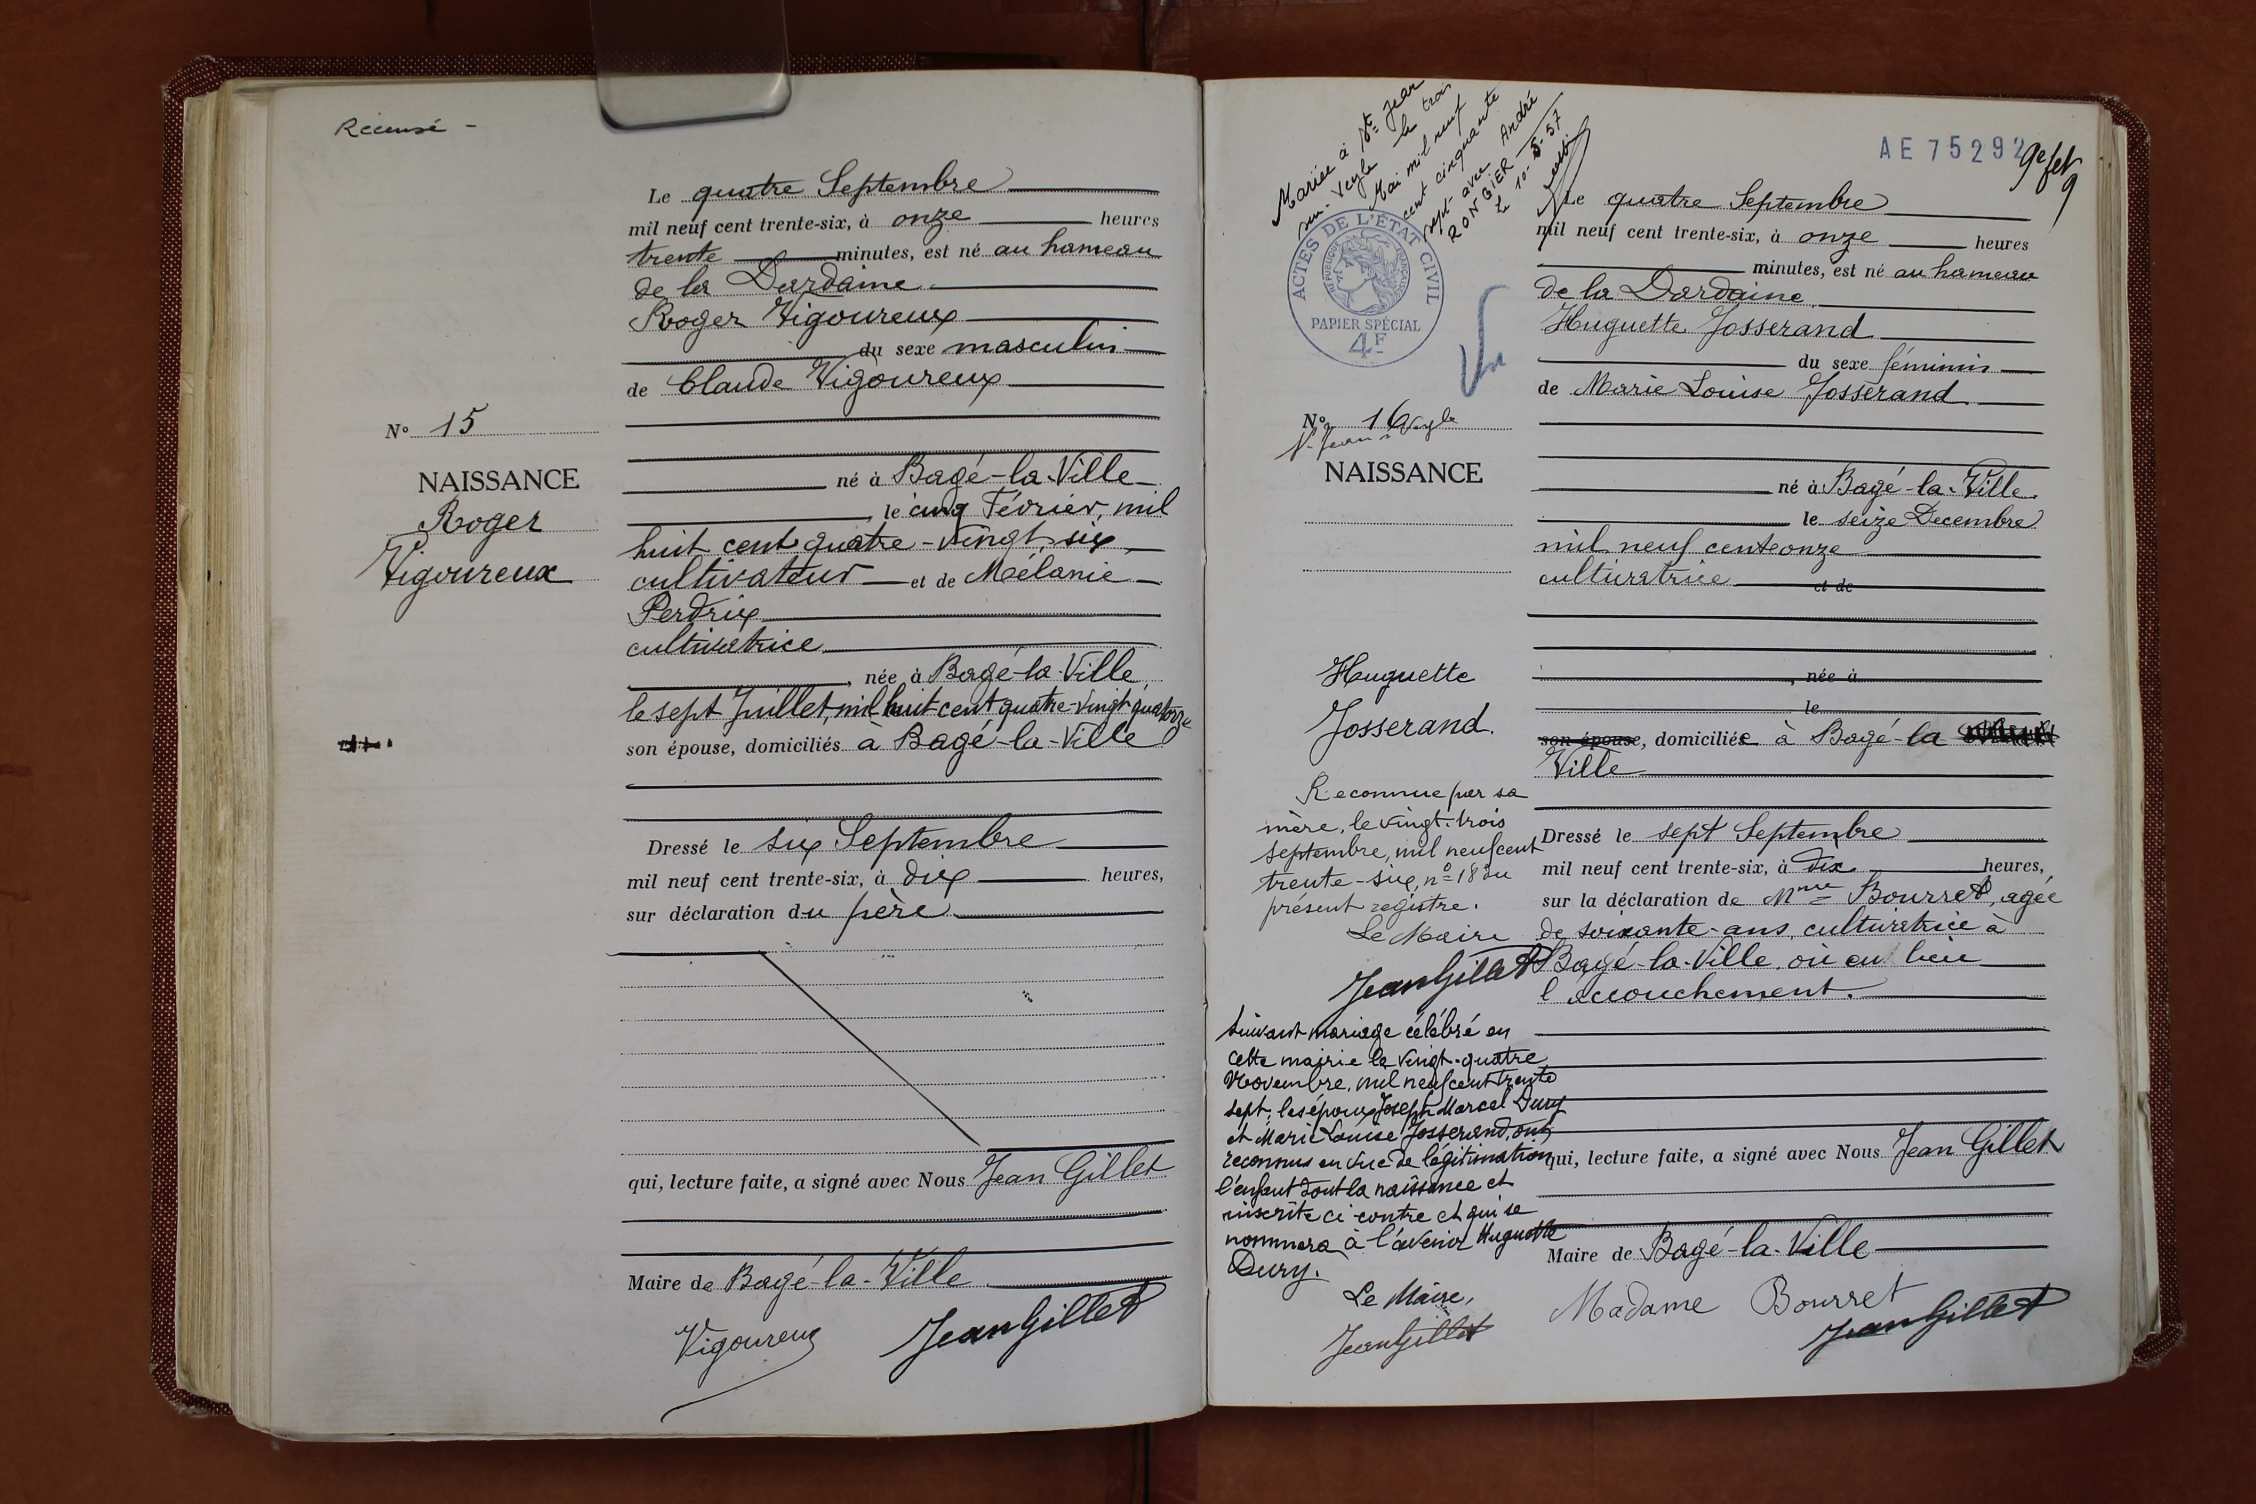 Récensé -
Le quatre Septembre
mil neuf cent trente-six, à onze heures
trente minutes, est né au hameau
de la Dardaine
Roger Vigoureux
du sexe masculin
de Claude Vigoureux
né à Bagé-la-Ville
, le cinq Février, mil
huit cent quatre-vingt six,
cultivateur et de Mélanie
Perdrix
cultivatrice
, née à Bagé-la-Ville,
le sept Juillet, mil huit cent quatre-vingt quatorze
son épouse, domiciliés à Bagé-la-Ville
Dressé le six Septembre
mil neuf cent trente-six, à dix heures,
sur déclaration du père
qui, lecture faite, a signé avec Nous Jean Gillet
Maire de Bagé-la-Ville
Vigoureux Jean Gillet
N° 15
NAISSANCE
Roger
Vigoureux
AE 75292
9e fet
9
Mariée à St Jean
sur-Veyle le trois
Mai mil neuf
cent cinquante
sept avec André
RONGIER
Le 10-5-57
ACTES DE L'ÉTAT CIVIL
RÉPUBLIQUE FRANÇAISE
PAPIER SPÉCIAL
4F
Vu
N° 16
St Jean s Veyle
NAISSANCE
Huguette
Josserand.
Reconnue par sa
mère, le vingt-trois
septembre, mil neuf cent
trente-six, n° 18 du
présent registre.
Le Maire
Jean Gillet
Suivant mariage célébré en
cette mairie le vingt-quatre
Novembre, mil neuf cent trente
sept, les époux Joseph Marcel Dury
et Marie Louise Josserand, ont
reconnus en vue de légitimation
l'enfant dont la naissance et
inscrite ci contre et qui se
nommera à l'avenir Huguette
Dury.
Le Maire,
Jean Gillet
Le quatre Septembre
mil neuf cent trente-six, à onze heures
minutes, est né au hameau
de la Dardaine
Huguette Josserand
du sexe féminin
de Marie Louise Josserand
né à Bagé-la-Ville
le seize Décembre
mil neuf cent onze
cultivatrice et de
, née à
le
son épouse, domiciliée à Bagé-la
Ville
Dressé le sept Septembre
mil neuf cent trente-six, à dix heures,
sur la déclaration de Mme Bourret, agée
de soixante-ans, cultivatrice à
Bagé-la-Ville, où eu lieu
l'accouchement.
qui, lecture faite, a signé avec Nous Jean Gillet
Maire de Bagé-la-Ville
Madame Bourret
Jean Gillet